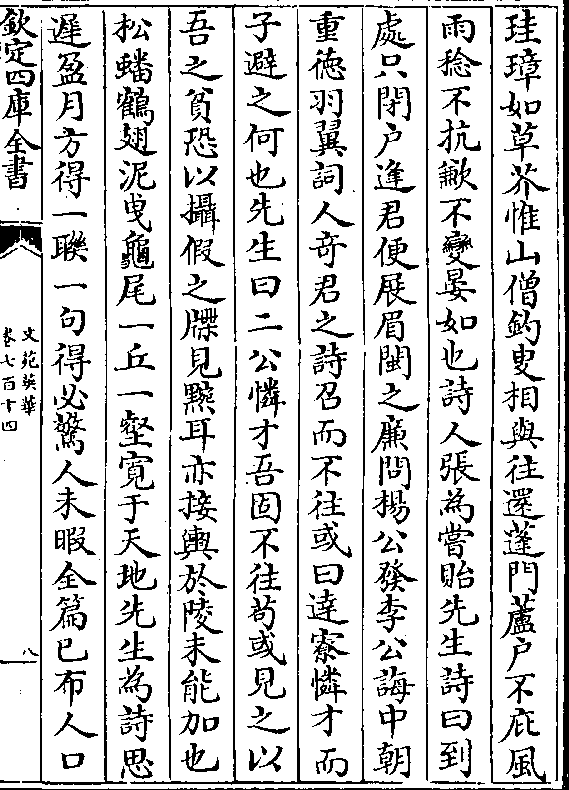 珪璋如草芥惟山僧釣叟相與往還蓬門蘆户不庇風
雨稔不抗歉不變晏如也詩人張為嘗貽先生詩曰到
處只閉户逢君便展眉閩之廉問楊公發李公誨中朝
重徳羽翼詞人竒君之詩召而不往或曰達寮憐才而
子避之何也先生曰二公憐才吾固不往茍或見之以
吾之貧恐以攝假之牒見黥耳亦接輿於陵未能加也
松蟠鶴翅泥曵龜尾一丘一壑寛于天地先生為詩思
遲盈月方得一聯一句得必驚人未暇全篇已布人口
欽定四庫全書
文苑英華
卷七百十四
八